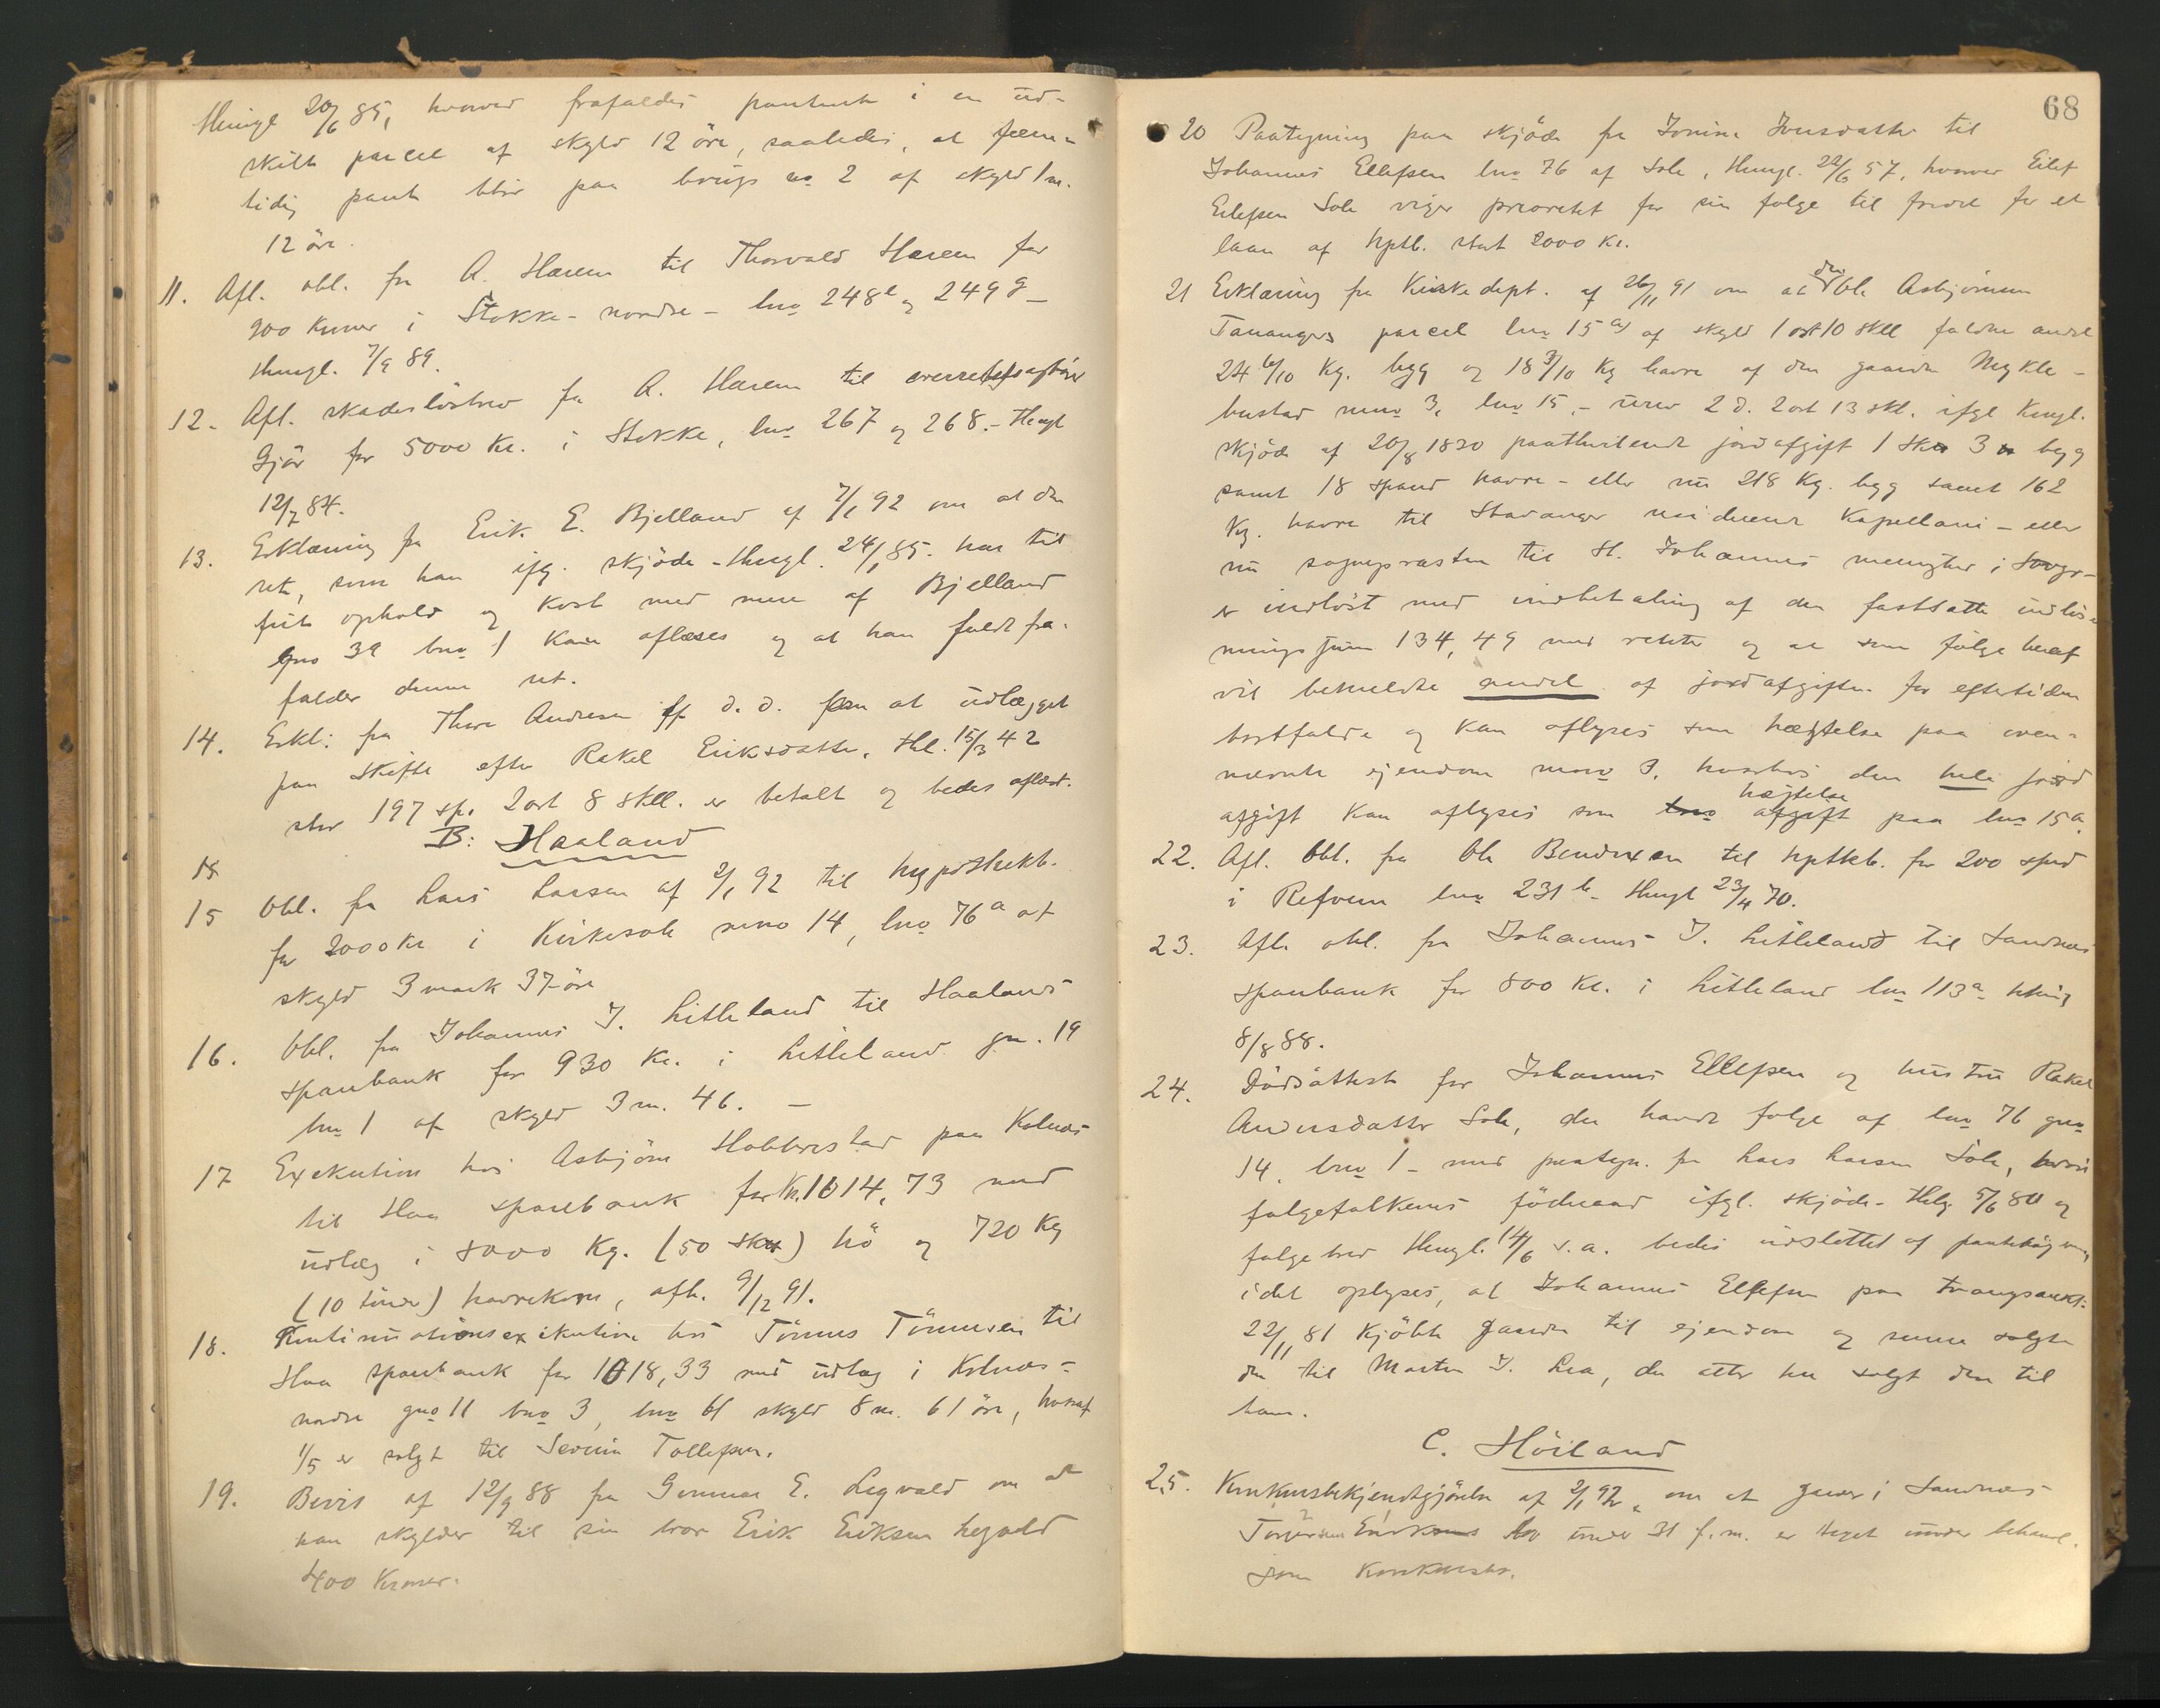 thingl 20/6 85, hvorved frafaldes panteret i en ud-
skilt parcel af skyld 12 öre, saaledes, at frem-
tidig pant blir paa brugs no 2 af skyld 1 m.
12 öre.
11. Afl. obl. fra A. Haren til Thorvald Haren for
900 Kroner i Stokke - nordre - lno 248 og 249 g -
thingl. 7/9 89.
12. Afl. skadeslösbrev fra A. Haren til overretssagförer
Gjör for 5000 Kr. i Stokke, lno 267 og 268. - thingl
12/7 84.
13. Erklæring fra Erik E. Bjelland af 7/1 92 om at den
ret, som han ifg. skjöde - thingl. 24/1 85. har til
frit ophold og Kost med mere af Bjelland
gno 39 bno 1 Kan aflæses og at han fuldt fra-
falder denne ret.
14. Erkl: fra Thore Andresen d. d. at udlægget
paa skifte efter Rakel Eriksdatter, thl. 15/3 42
stor 197 sp. 2 ort 8 skll. er betalt og bedes aflæst.
B: Haaland
15 Obl. fra Lars Larsen af 2/1 92 til hypothekb.
for 2000 Kr i Kirkesole mno 14, lno 76 a af
skyld 3 mark 37 öre
16. Obl. fra Johannes J. Litleland til Haalands
sparebank for 930 Kr. i Litleland gn. 19
bno 1 af skyld 3 m. 46. -
17 Exekution hos Asbjörn Hobberstad paa Kolnes
til Haa sparebank for Kr. 1014,73 med
udlæg i 8000 Kg. (50 ) hö og 720 Kg
(10 tönder) havrekorn, afh. 9/12 91.
18. Kontinuationsexekution hos Tönnes Tönnesen til
Haa sparebank for 1018,33 med udlæg i Kolnes -
nordre gno 11 bno 3, lno 61 skyld 8 m. 61 öre, hvoraf
1/5 er solgt til Severin Tollefsen.
19. Bevis af 12/9 88 fra Gunnar E. Legvold om at
han skylder til sin bror Erik Eriksen Legvold
400 Kroner.
68
20 Paategning paa skjöde fra Jonina Jonsdatter til
Johannes Ellefsen lno 76 af Sole, thingl. 22/6 57, hvorved Eilef
Eilefsen Sole viger prioritet for sin folge til fordel for et
laan af hptb. stort 2000 Kr.
21 Erklæring fra Kirkedept. af 26/11 91 om at den Ole Asbjörnsen
Tanangers parcel lno 15 a) af skyld 1 ort 10 skll faldne andel
24 6/10 Kg. byg og 18 3/10 Kg havre af den gaarden Mykle-
bustad mno 3, lno 15, - urev 2 d. 2 ort 13 skl. ifgl Kongl.
skjöde af 20/8 1830 paathvilende jordafgift 1 3 byg
samt 18 spand havre - eller nu 218 Kg. byg samt 162
Kg. havre til Stavanger residerende Kapellani - eller
nu sogneprasten til St. Johannes menighed i Stvgr -
er indlöst med indbetaling af den fastsatte indlös-
ningssum 134,49 med renter og at som fölge heraf
vil bemeldte andel af jordafgiften for eftertiden
bortfalde og Kan aflyses som hæftelse paa oven-
nævnte ejendom mno 3, hvorhos den hele jord
afgift Kan aflyses som hæftelse paa lno 15 a.
22. Afl. Obl. fra Ole Bendixen til hpthb. for 200 spd
i Refvem lno 231 b - thingl 23/4 70.
23. Afl. obl. fra Johannes J. Litleland til Sandnes
sparebank for 800 Kr. i Litleland lno 113 a
8/8 88.
24. Dödsattest for Johannes Ellefsen og hustru Rakel
Andersdatter Sole, der havde folge af lno 76 gno
14. bno 1 - med paategn. fra Lars Larsen Sole, hvori
folgefolkenes föderaad ifgl. skjöde - thlg. 5/6 80 og
folgebrev thingl. 14/6 s. a. bedes udslettet af pantebögerne
idet oplyses, at Johannes Ellefsen paa tvangsaukt:
22/11 81 Kjöbte gaarden til ejendom og senere solgte
den til Morten J. Lea, der atter har solgt den til
ham.
C. Höiland
25. Konkursbekjendtgjörelse af 2/1 92 om at i Sandnes -
bo under 31 f. m. er taget under behandl.
som Konkursbo.